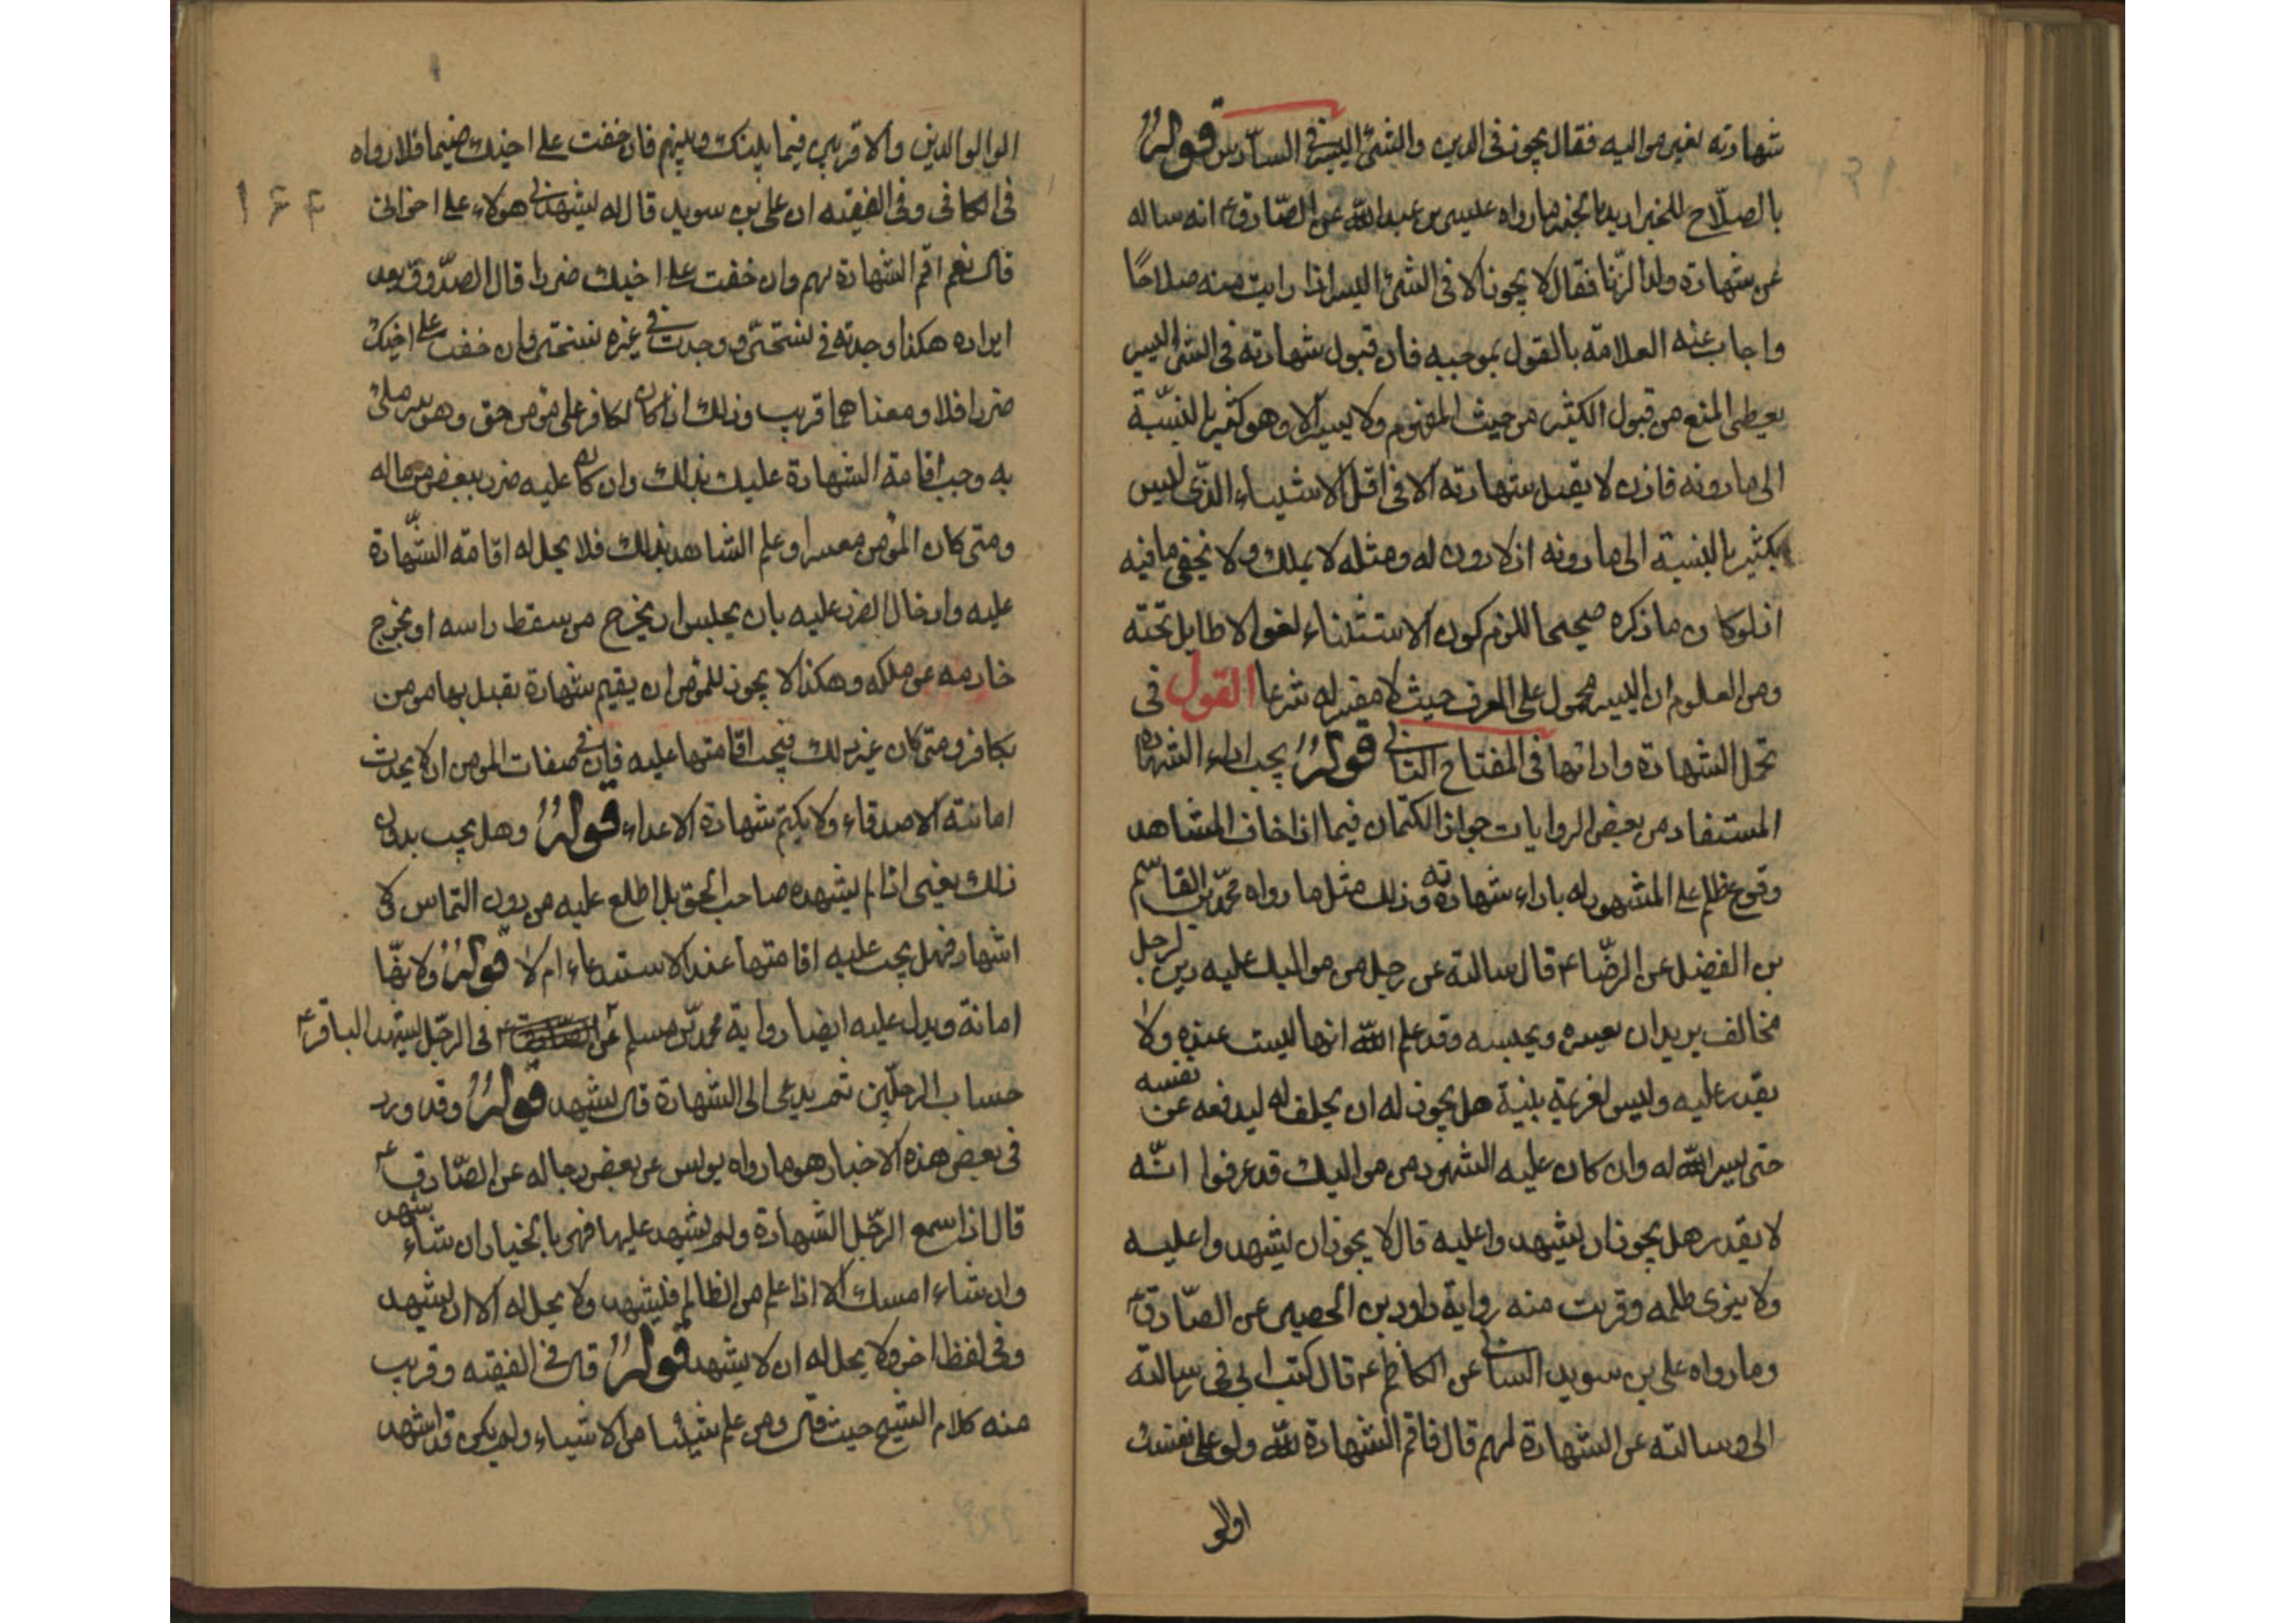 شهادته لغير مواليه فقال يجوز فى الدين والشئ اليسير فى السادس قوله
بالصلاح للخبر اريد بالخبر ما رواه عيسى بن عبدالله عن الصّادق ع انه ساله
عن شهادة ولد الزّنا فقال لا يجوز الا فى الشئ اليسير اذا رايت منه صلاحًا
واجاب عنه العلامّة بالقول بموجبه فان قبول شهادته فى الشئ اليسير
يعطى المنع من قبول الكثير من حيث المفهوم ولا يسير الا وهو كثير بالنسّبة
الى ما دونه فاذن لا يقبل شهادته الا فى اقل الاشياء الذّى ليس
بكثير بالنسبة الى ما دونه اذ لا دون له ومثله لا يملك ولا يخفى ما فيه
اذ لو كان ما ذكره صحيحا للزم كون الاستثناء لغوا لا طايل تحته
ومن المعلوم ان اليسير محمول على العرف حيث لا مفسر له شرعا القول فى
تحمل الشهادة وادائها فى المفتاح الثانى قوله يجب اداء الشهادة
المستفاد من بعض الروايات جواز الكتمان فيما اذا خاف الشاهد
وقوع ظلم على المشهود له باداء شهادته وذلك مثل ما رواه محمّد بن القاسم
بن الفضيل عن الرضّا ع قال سالته عن رجل من مواليك عليه دين لرجل
مخالف يريد ان يعسره ويحبسه وقد علم الله انها ليست عنده ولا
يقدر عليه وليس لغريمه بينة هل يجوز له ان يحلف له ليدفعه عن نفسه
حتى ييسر الله له وان كان عليه الشهود من مواليك قد عرفوا انّه
لا يقدر هل يجوز ان يشهدوا عليه قال لا يجوز ان يشهدوا عليه
ولا ينوى ظلمه وقريب منه رواية داود بن الحصين عن الصّادق ع
وما رواه على بن سويد السائى عن الكاظم ع قال كتب ابى فى رسالته
الى وسالته عن الشهادة لهم قال فاقم الشهادة لله ولو على نفسك
اوالو
الوالوالدين والاقربين فيما بينك وبينهم فان خفت على اخيك ضيما فلا رواه
فى الكافى وفى الفقيه ان على بن سويد قال له يشهدنى هولاء على اخوانى
قال نعم اقم الشهادة لهم وان خفت على اخيك ضررا قال الصدّوق بعد
ايراده هكذا وجدته فى نسختى ووجدت فى غيره نسختى وان خفت على اخيك
ضررا فلا ومعناهما قريب وذلك اذا كان لكافر على مؤمن حق وهو موسر ملئ
به وجب اقامة الشهادة عليك بذلك وان كان عليه ضرر ببعض من ماله
ومتى كان المؤمن معسرا وعلم الشاهد بذلك فلا يحل له اقامة الشّهادة
عليه وادخال الضرر عليه بان يحبس او يخرج من سقط راسه او يخرج
خادمه عن ملكه وهكذا لا يجوز للمؤمن ان يقيم شهادة يقبل بها مؤمن
بكافر ومتى كان غير ذلك فيجب اقامتها عليه فان فى صفات المؤمن ان لا يحدث
امانته الاصدقاء ولا يكتم شهادة الاعداء قوله وهل يجب بدون
ذلك يعنى اذا لم يشهده صاحب الحق بل اطلع عليه من دون التماس كى
اشهاد فهل يجب عليه اقامتها عند الاستدعاء ام لا قوله ولانهّا
امانة ويدل عليه ايضا رواية محمد بن مسلم عن الباقر ع فى الرجّل يشهد
حساب الرجلّين ثم يدعى الى الشهادة قال يشهد قوله وقد ورد
فى بعض هذه الاخبار هو ما رواه يونس عن بعض رجاله عن الصّادق ع
قال اذا سمع الرجّل الشهادة ولم يشهد عليها فهو بالخيار ان شاء شهد
وان شاء امسك الا اذا علم من الظالم فليشهد ولا يحل له الا ان يشهد
وفى لفظ اخر ولا يحل له ان لا يشهد قوله قال فى الفقيه وقريب
منه كلام الشيخ حيث قال ومن علم شيئا من الاشياء ولم يكن قد اشهد